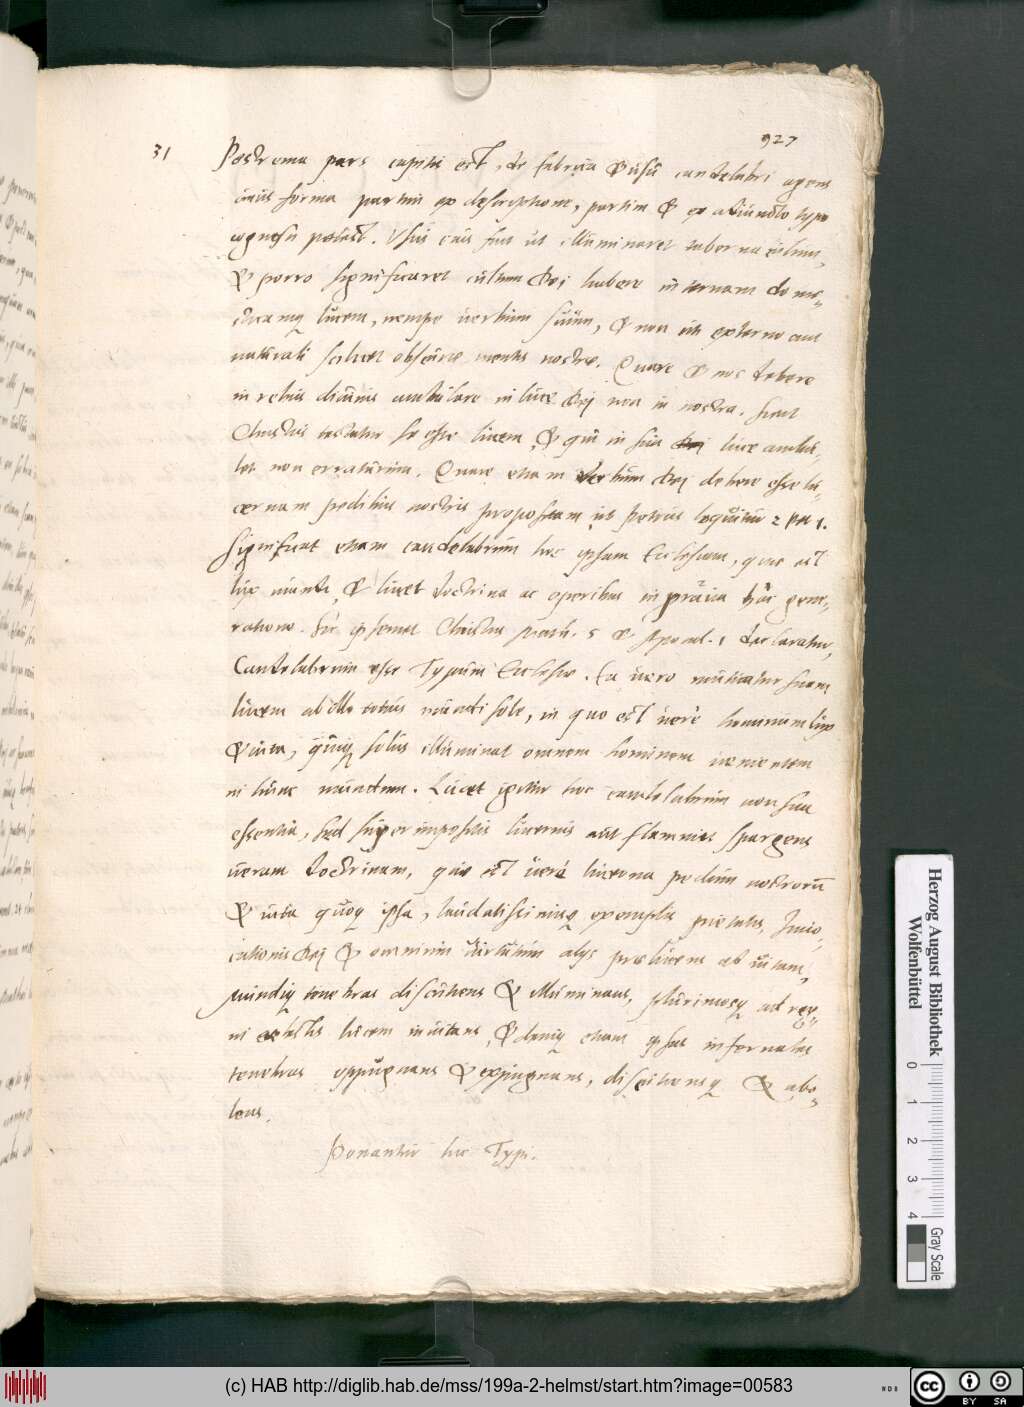 927
31 Postrema pars capitis est, de fabrica & usu candelabri agens
cuius forma partim ex descriptione, partim & ex adiuncto typo
cognosci potest. Usus eius fuit ut illuminaret tabernaculum,
& porro significaret cultum Dei habere internam domes-
ticamq lucem, nempe verbum suum, & non uti externo aut
naturali scilicet obscurae mentis nostrae. Quare & nos debere
in rebus divinis ambulare in luce Dei non in nostra. sicut
Christus testatur se esse lucem, & qui in sua luce ambu-
let non erraturum. Quare etiam verbum Dei debere esse lu-
cernam pedibus nostris propositam ut Petrus loquitur 2 Pet 1.
Significat etiam candelabrum hoc ipsam Ecclesiam, quae est
lux mundi, & lucet doctrina ac operibus in prava hac gene-
ratione. Sic ipsemet Christus Math. 5 & Apocal. 1 declaratur,
Candelabrum esse Typum Ecclesiae. Ea vero mutuatur suam
lucem ab illo totius mundi sole, in quo est vere hominum lux
& vita, quiq solus illuminat omnem hominem venientem
in hunc mundum. Lucet igitur hoc candelabrum non sua
essentia, sed superimpositis lucernis aut flammis spargens
veram doctrinam, quae est vera lucerna pedum nostrorum
& vita quoq ipsa, laudatissimisq exemplis pietatis, Invo-
cationis Dei & omnium virtutum alijs praelucens ad vitam,
mundiq tenebras discutiens & illuminans, plurimosq ad reg-
ni coelestis lucem invitans, & deniq etiam ipsas infernales
tenebras oppugnans & expugnans, discutiensq & abo-
lens.
Ponantur hic Typi.
Herzog August Bibliothek
Wolfenbüttel
0 1 2 3 4
Gray Scale
(c) HAB http://diglib.hab.de/mss/199a-2-helmst/start.htm?image=00583
cc BY SA